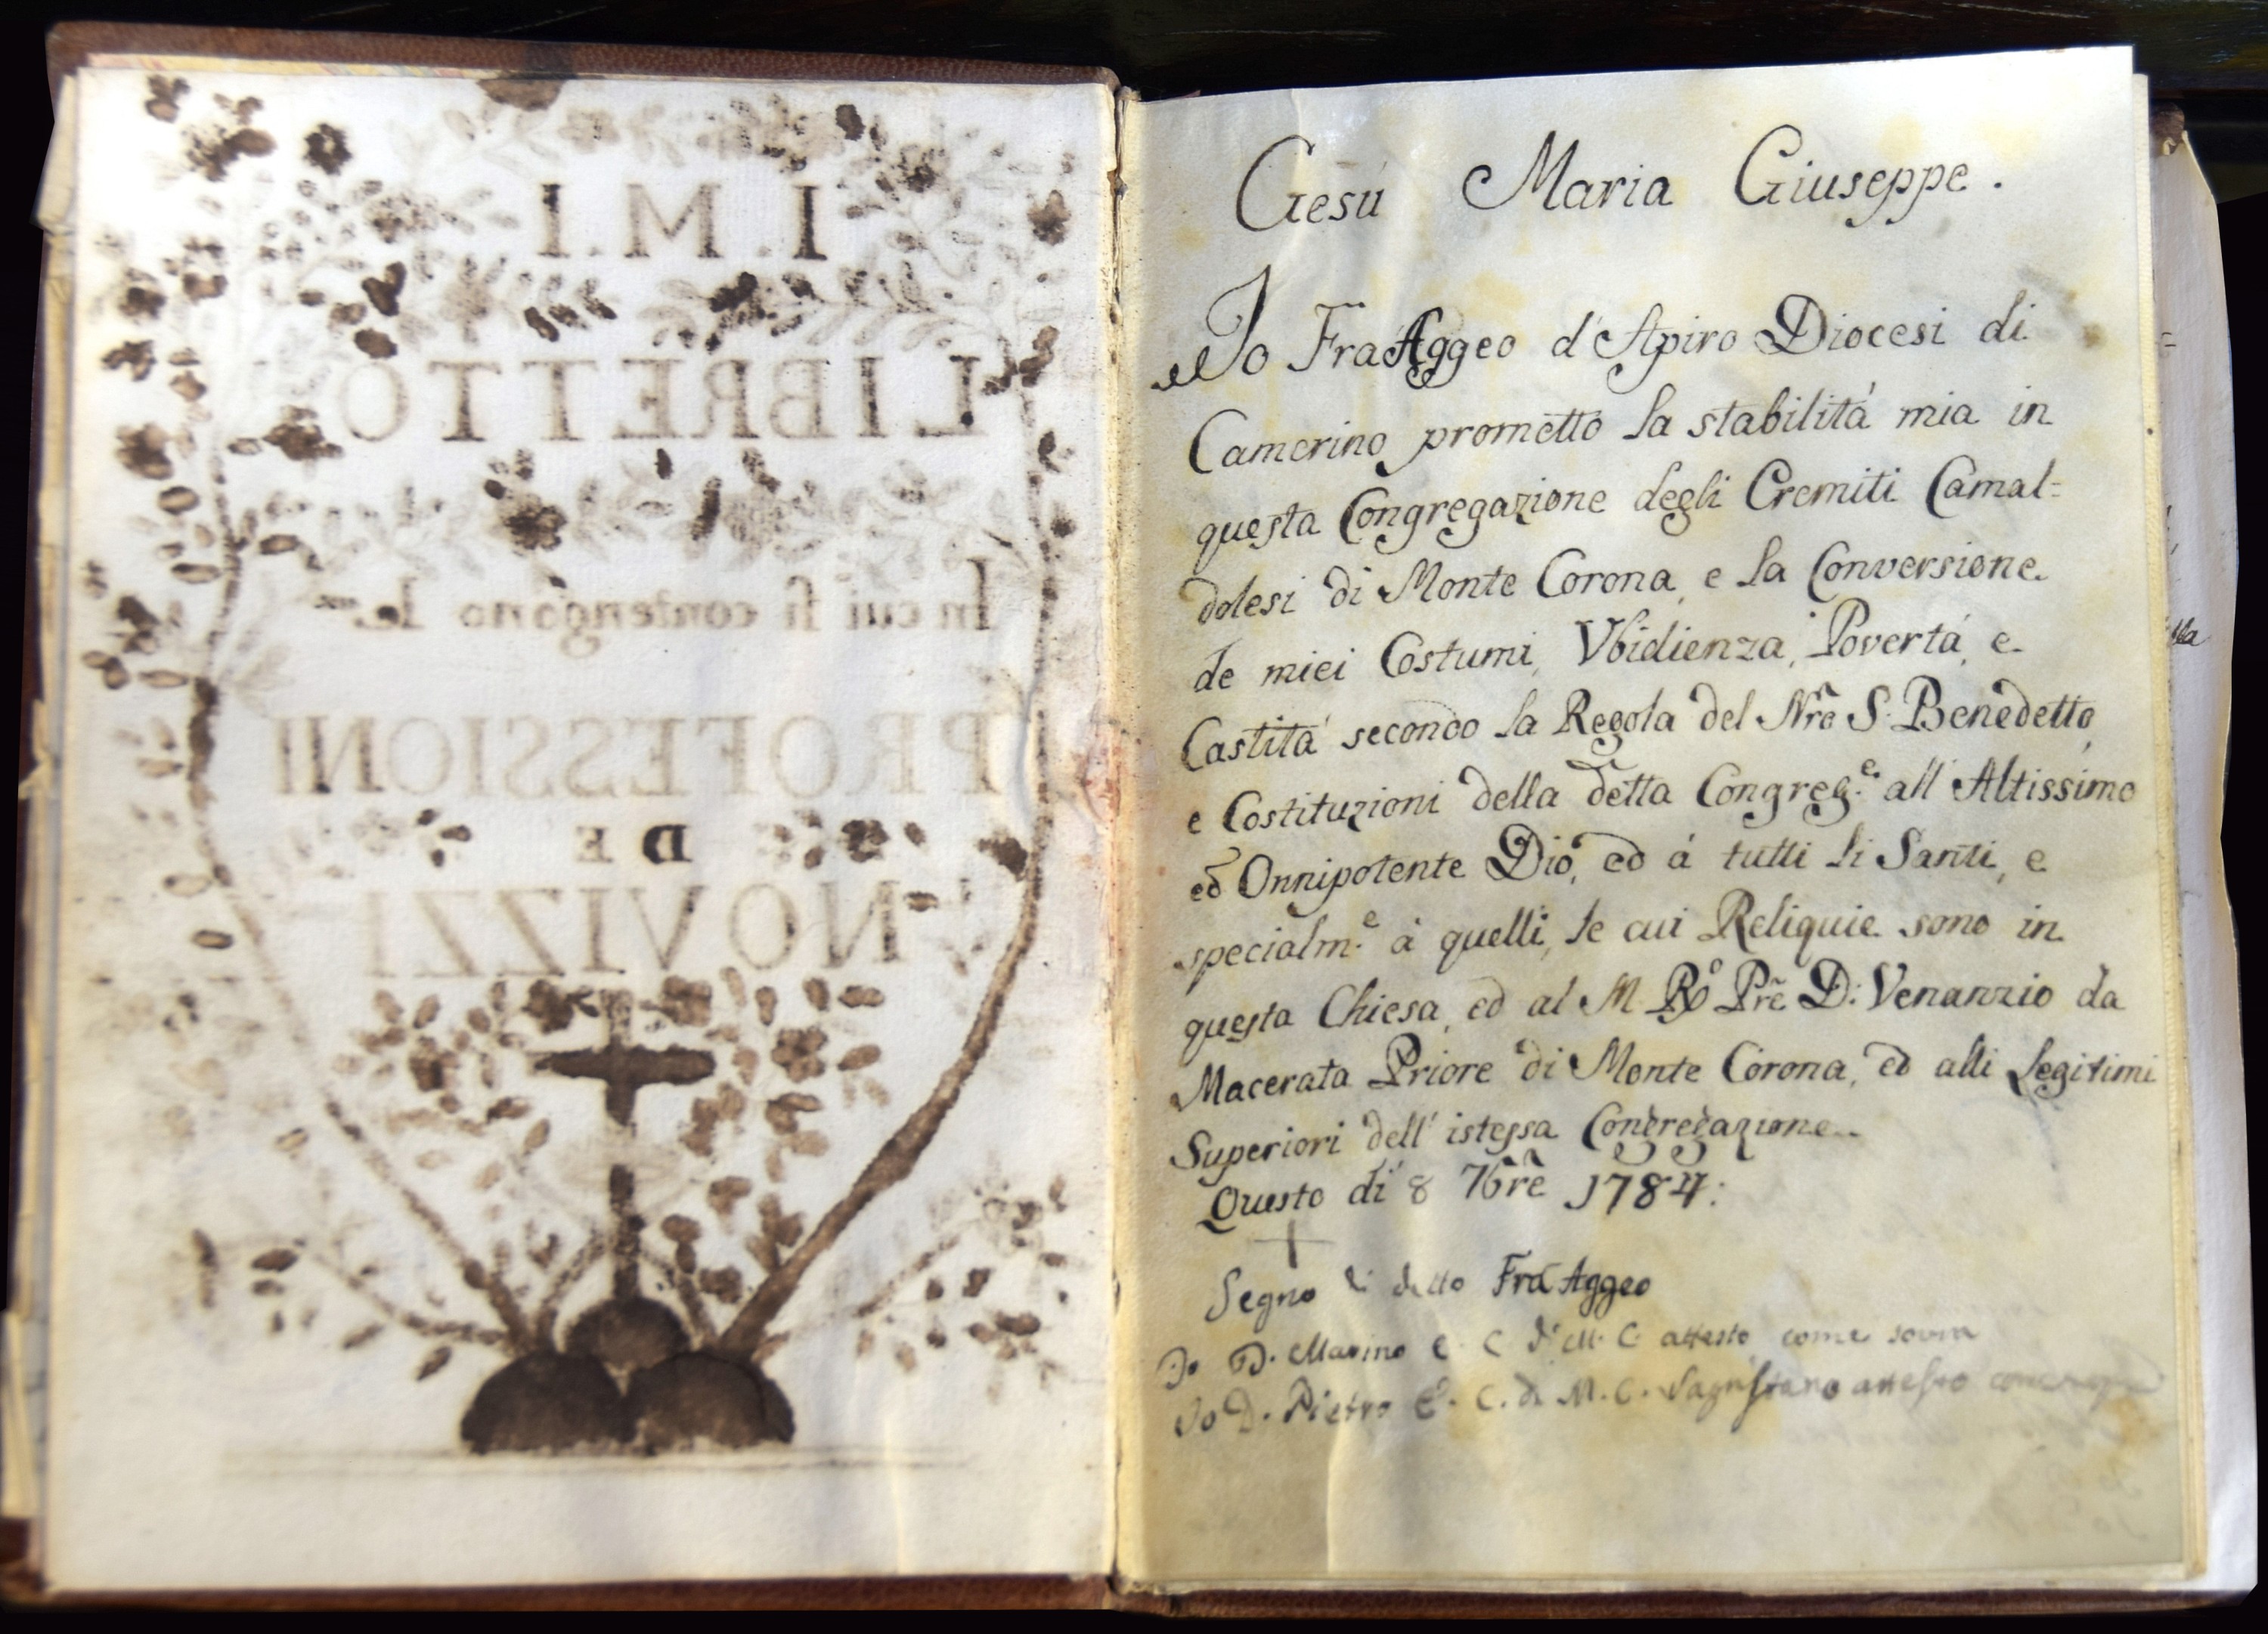 I. M. I.
LIBRETTO
In cui si contengono le
PROFESSIONI
DE
NOVIZZI
Gesù Maria Giuseppe.
Io Fra Aggeo d'Apiro Diocesi di
Camerino prometto la stabilità mia in
questa Congregazione degli Eremiti Camal=
dolesi di Monte Corona, e la Conversione
de miei Costumi, Vbidienza, Povertá, e
Castitá secondo la Regola del Nrõ S. Benedetto,
e Costituzioni della detta Congreg.e all'Altissimo
ed Onnipotente Dio, ed á tutti li Santi, e
specialm.e á quelli, le cui Reliquie sono in
questa Chiesa, ed al M. Rõ Prẽ D: Venanzio da
Macerata Priore di Monte Corona, ed alli Legitimi
Superiori dell'istessa Congregazione
Questo dì 8 7brẽ 1784:
+
Segno di detto Frà Aggeo
Io D. Marino E. C. di M. C. attesto come sovra
Io D. Pietro E. C. di M. C. Sagristano attesto come